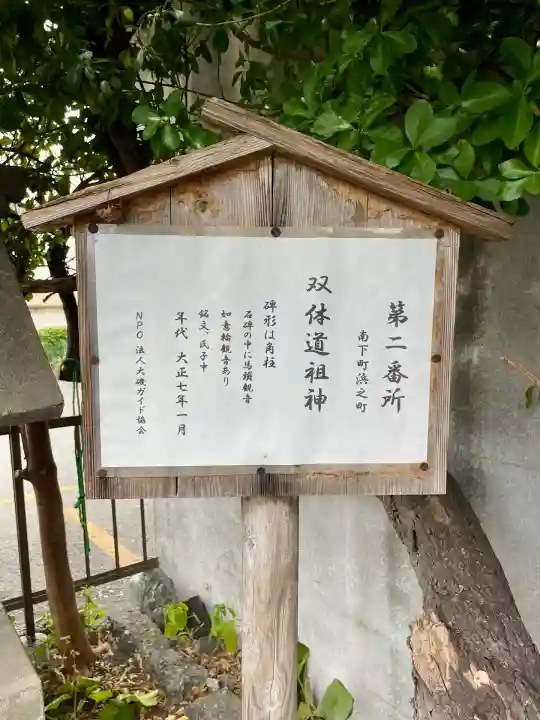 第二番所
南下町浜之町
双体道祖神
碑形は角柱
石碑の中に馬頭観音
如意輪観音あり
銘文、氏子中
年代 大正七年一月
NPO法人大磯ガイド協会